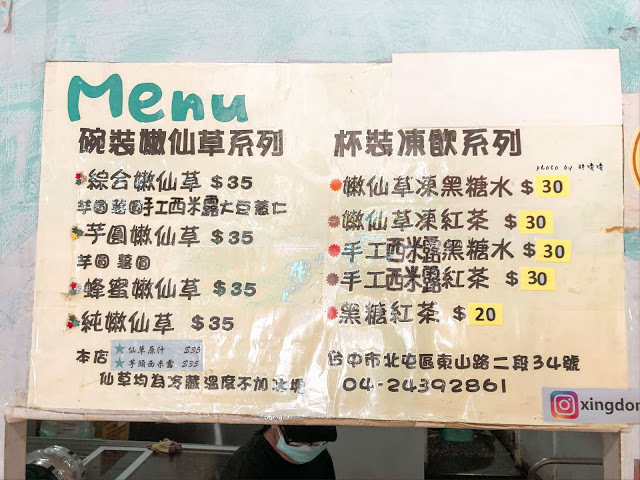 Menu
碗裝嫩仙草系列
綜合嫩仙草 $35
芋圓 薯圓 手工西米露 大豆 薏仁
芋圓嫩仙草 $35
芋圓 薯圓
蜂蜜嫩仙草 $35
純嫩仙草 $35
本店
★仙草原汁 $35
★芋頭西米露 $35
仙草均為冷藏溫度不加冰塊
杯裝凍飲系列
photo by
嫩仙草凍黑糖水 $30
嫩仙草凍紅茶 $30
手工西米露黑糖水 $30
手工西米露紅茶 $30
黑糖紅茶 $20
台中市北屯區東山路二段34號
04-24392861